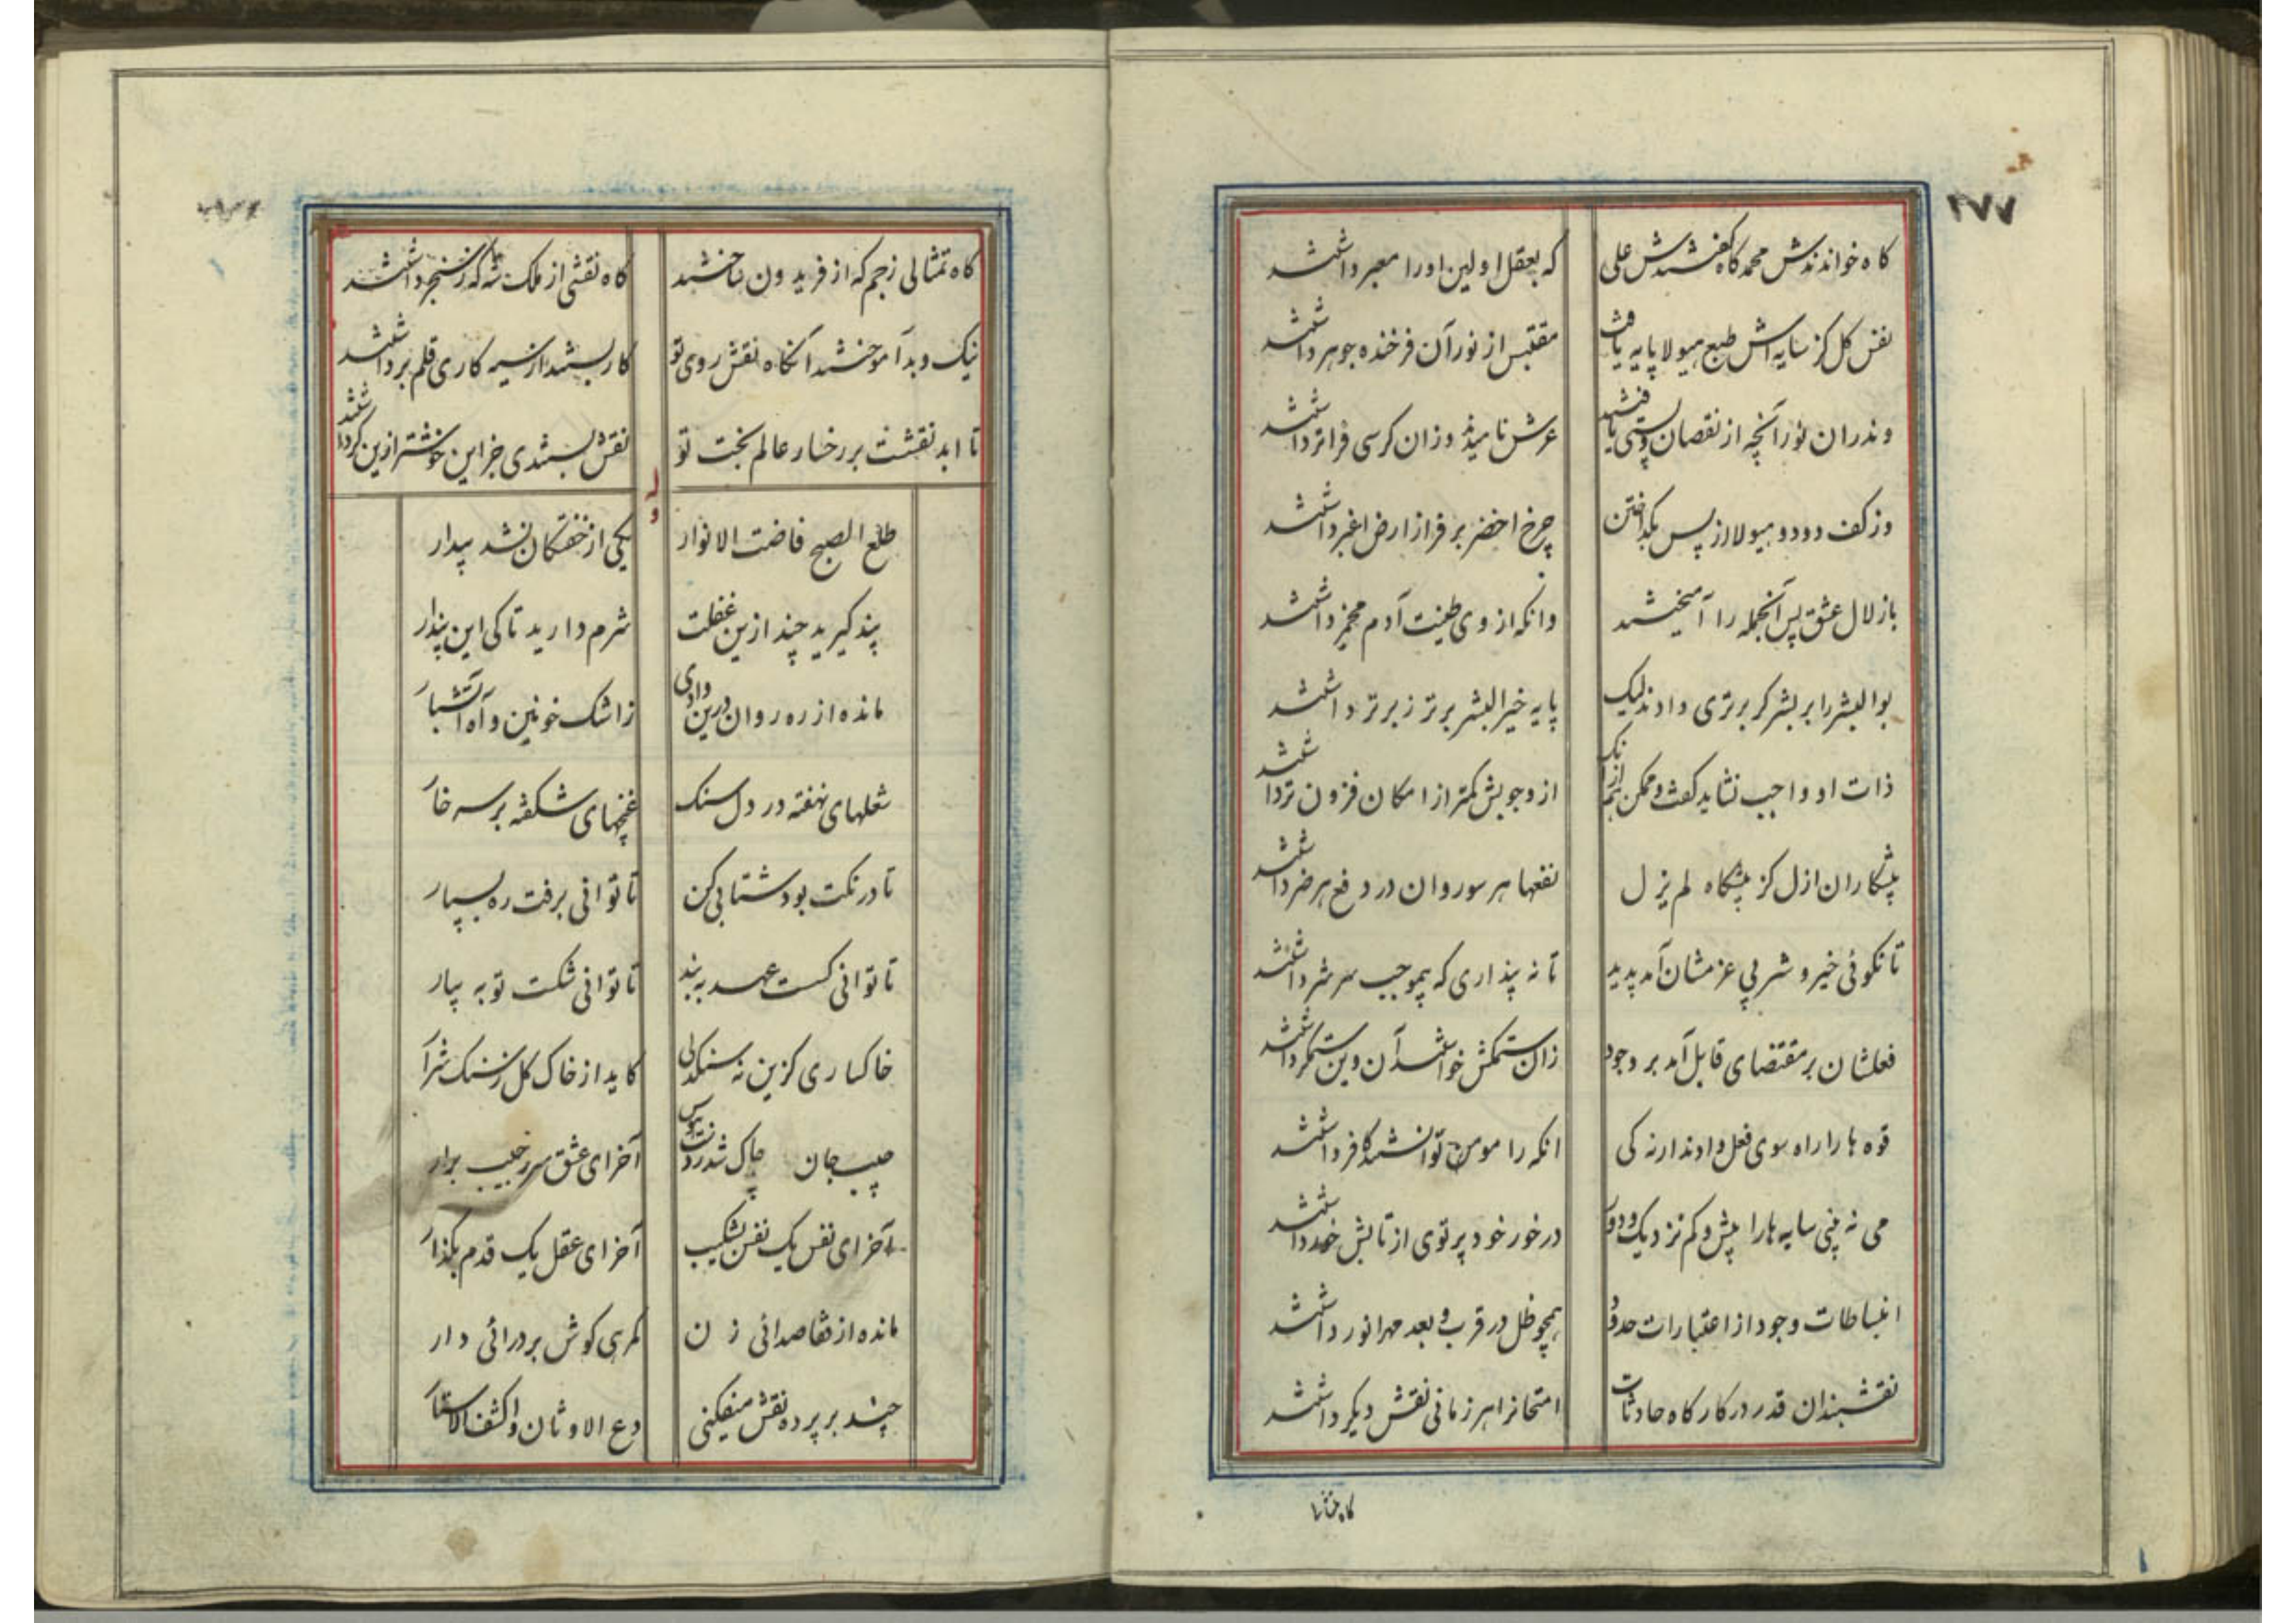 ۲۷۷
کاه خواندندش محمد کاه گفتندش علی که بعقل اولین او را معبر داشتند
نفس کل کز سایه اش طبع هیولا پایه یافت مقتبس از نور آن فرخنده جوهر داشتند
وندران نور آنچه از نقصان و پستی یافتند عرش نامیدند وزان کرسی فراتر داشتند
وز کف و دود هیولا از پس بگداختن چرخ اخضر بر فراز ارض اغبر داشتند
با زلال عشق پس آنجمله را آمیختند وانکه از وی طینت آدم مخمر داشتند
بوالبشر را بر بشر کر برتری دادند لیک پایه خیر البشر برتر ز برتر داشتند
ذات او واجب نشاید گفت و ممکن هم از آنک از وجوبش کمتر از امکان فزون تر داشتند
پیشکاران ازل کز پیشگاه لم یزل نفعها هر سو روان در دفع هر ضر داشتند
تا نکوئی خیر و شر بی عزمشان آمد پدید تا نه پنداری که بیموجب سر شر داشتند
فعلشان بر مقتضای قابل آمد بر وجود زان ستمکش خواستند آن وین ستمگر داشتند
قوه ها را راه سوی فعل دادند ارنه کی انکه را مومن توانستند کافر داشتند
می نه بینی سایه ها را بیش و کم نزدیک و دور در خور خود پرتوی از تابش خور داشتند
انبساطات وجود از اعتبارات حدود همچو ظل در قرب و بعد مهر انور داشتند
نقشبندان قدر در کارگاه حادثات امتحانرا هر زمانی نقش دیگر داشتند
کاه تمثالی
کاه تمثالی ز جم که از فریدون ساختند کاه نقشی از ملک شه که ز سنجر داشتند
نیک و بد آموختند آنگاه نقش روی تو کار بستند از سیه کاری قلم برداشتند
تا ابد نقشت بر رخسار عالم بخت تو نقش بستندی جز این خوشتر ازین کر داشتند
وله
طلع الصبح فاضت الانوار یکی از خفتگان نشد بیدار
پند گیرید چند ازین غفلت شرم دارید تا کی این پندار
مانده از ره روان درین وادی ز اشک خونین و آه آتشبار
شعلهای نهفته در دل سنک غنچهای شکفته بر سر خار
تا درنگت بود شتابی کن تا توانی برفت ره بسپار
تا توانی کسست عهد به بند تا توانی شکست توبه بیار
خاکساری گزین نه سنگدلی کاید از خاک گل ز سنک شرار
جیب جان چاک شد ز دست هوس آخر ای عشق سر ز جیب برار
آخر ای نفس یک نفس بشکیب آخر ای عقل یک قدم بگذار
مانده از قاصدانی ز ن کمرهی گوش بر درائی دار
چند بر پرده نقش میفکنی دع الاوثان واکشف الاستار